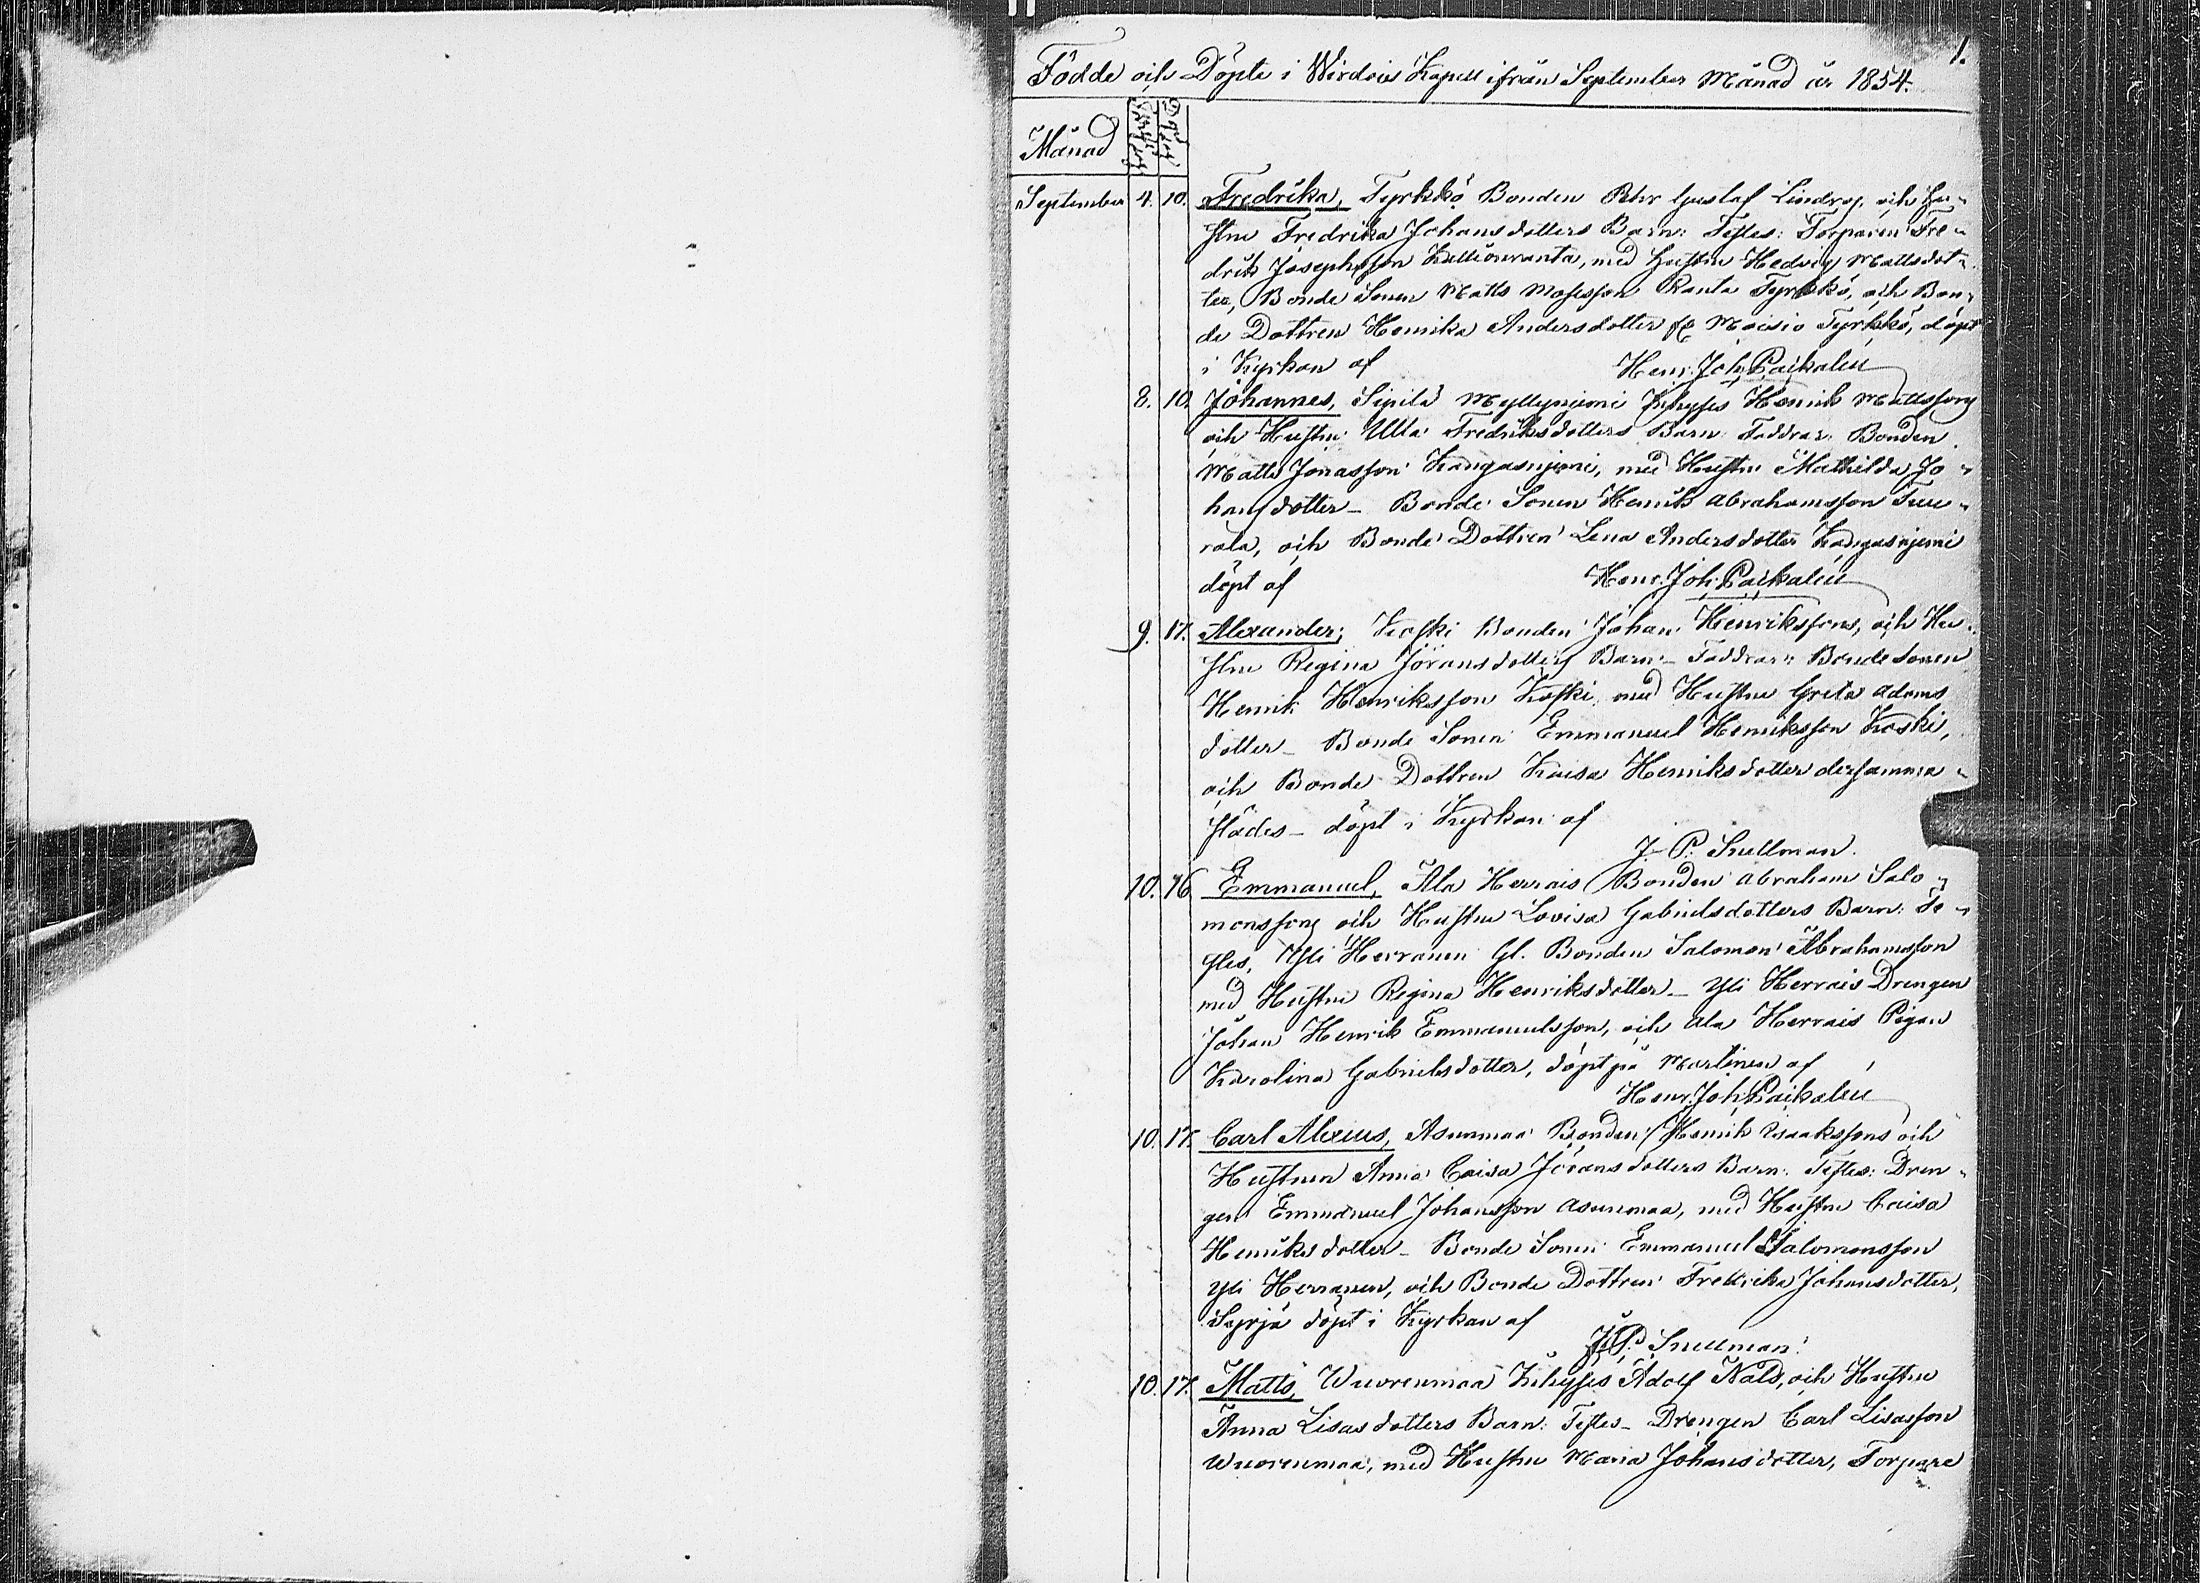 1.
Födde och Döpte i Wirdois Kapell ifrån September Månad år 1854.
Månad
September 4. 10. Fredrika, Tyrkkö Bonden Petter Gustaf Lindroj, och Hu-
strun Fredrika Johansdotters Barn: Testes: Torparen Fre-
drik Josephsson Kallioranta, med Hustru Hedvig Mattsdot-
ter, Bonde Sonen Matts Mosesson Ranta Tyrkkö, och Bon-
de Dottren Henrika Andersdotter Moisio Tyrkkö, döpt
i Kyrkan af Henr. Joh. Paikalen
8. 10. Johannes, Sipilä Myllyniemi Inhyses Henrik Mattssons
och Hustru Ulla Fredriksdotters Barn. Faddrar: Bonden
Matts Jonasson Kangasnjemi, med Hustru Mathilda Jo-
hansdotter - Bonde Sonen Henrik Abrahamsson Tuu-
rala, och Bonde Dottren Lena Andersdotter Kangasnjemi
döpt af Henr. Joh. Paikalen
9. 17. Alexander, Koski Bonden Johan Henrikssons, och Hu-
stru Regina Göransdotters Barn - Faddrar: Bonde Sonen
Henrik Henriksson Koski med Hustru Greta Adams
dotter - Bonde Sonen Emmanuel Henriksson Koski,
och Bonde Dottren Kaisa Henriksdotter dersamma-
städes - döpt i Kyrkan af
J. P. Snellman.
10. 16 Emmanuel, Ala Herrais Bonden Abraham Salo-
monssons och Hustru Lovisa Gabrielsdotters Barn: Te-
stes, Yli Herranen Gl. Bonden Salomon Abrahamsson
med Hustru Regina Henriksdotter - Yli Herrais Drengen
Johan Henrik Emmanuelsson, och Ala Herrais Pigan
Karolina Gabrielsdotter, döpt på Martinen af
Henr. Joh. Paikalen
10. 17. Carl Alexius, Asunmaa Bonden Henrik Isaakssons och
Hustrun Anna Caisa Göransdotters Barn: Testes: Dren-
gen Emmanuel Johansson Asunmaa, med Hustru Caisa
Henriksdotter - Bonde Sonen Emmanuel Salomonsson
Yli Herranen, och Bonde Dottren Fredrika Johansdotter,
Syrjä döpt i Kyrkan af
J. P. Snellman.
10. 17. Matts, Wuorenmaa Inhyses Adolf Nald, och Hustru
Anna Lisas dotters Barn: Testes - Drengen Carl Lisasson
Wuorenmaa, med Hustru Maria Johansdotter, Torpare